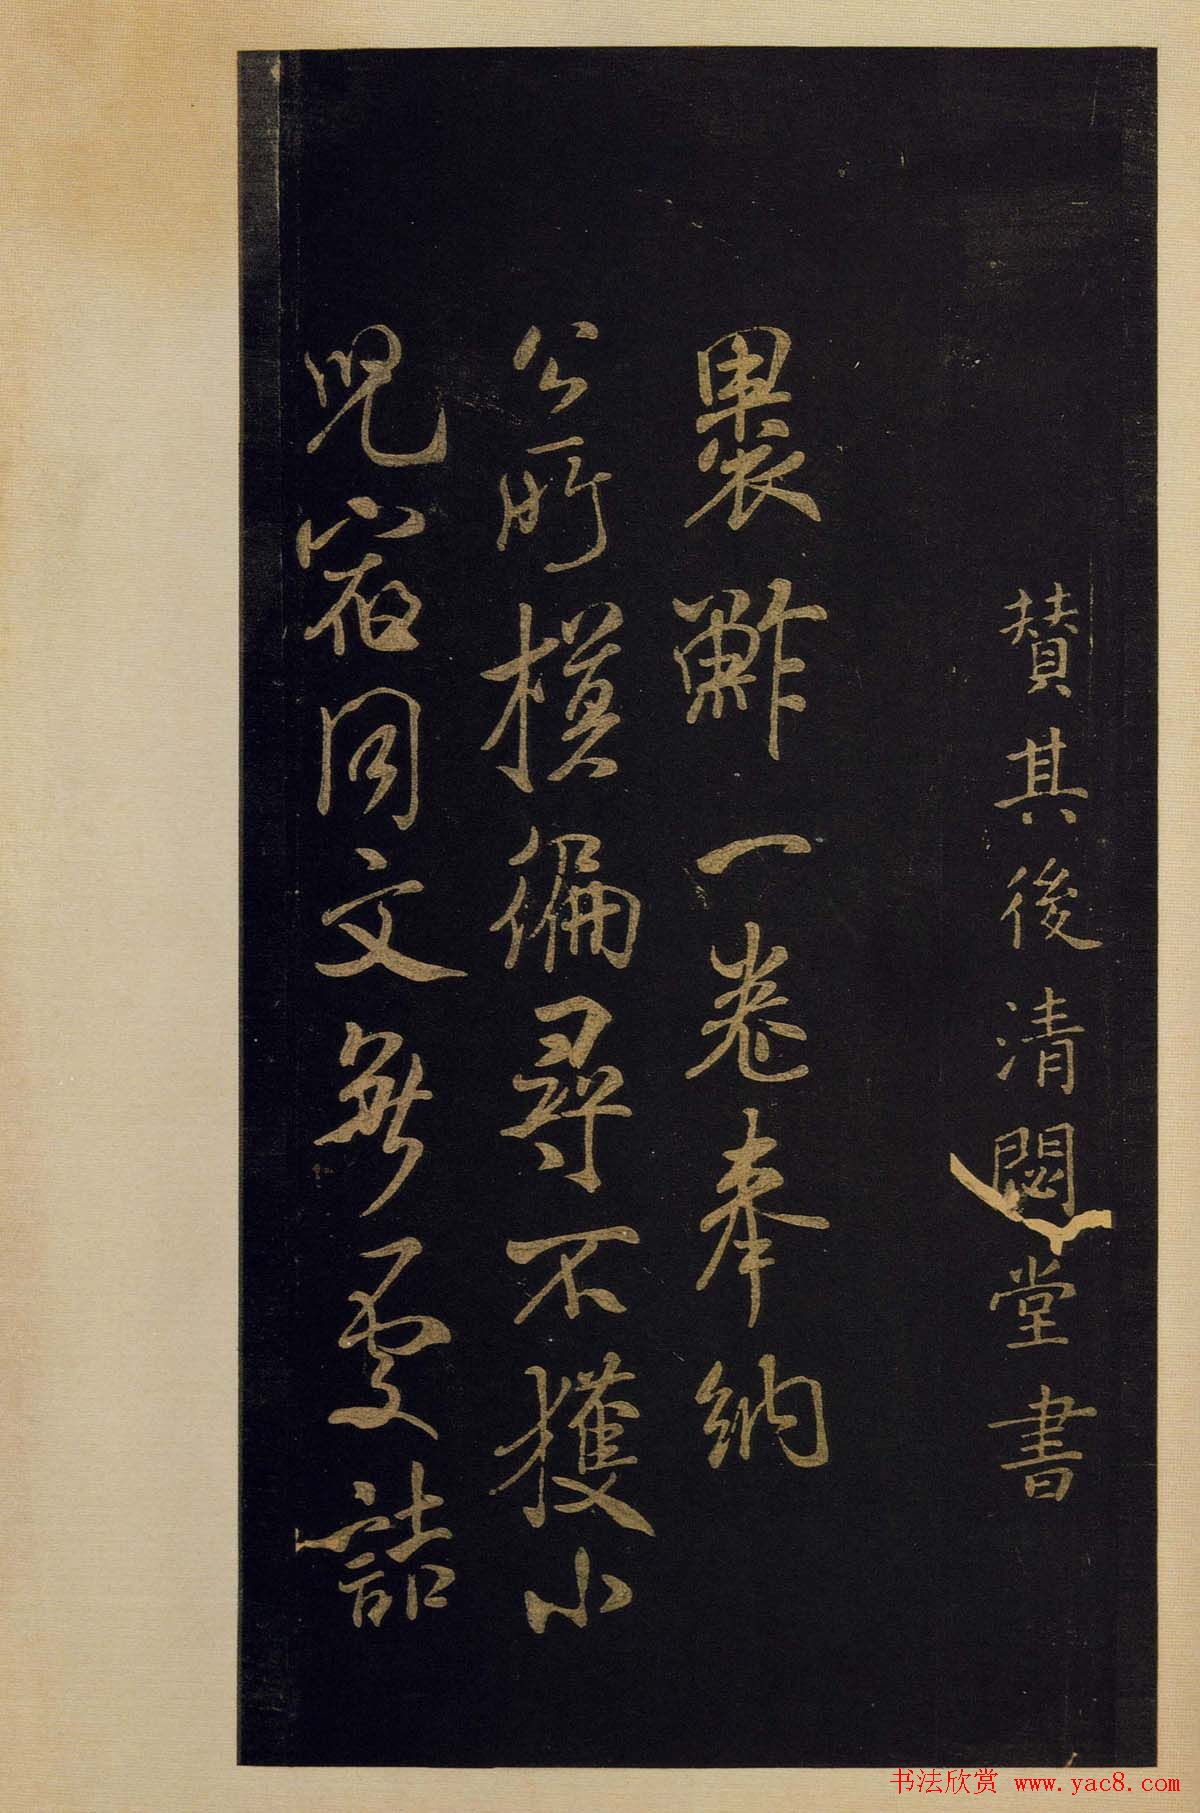 賛其後清閟堂書
裹鮓一卷奉納
公所模徧尋不獲小
兒宿同文無處詰
书法欣赏 www.yac8.com